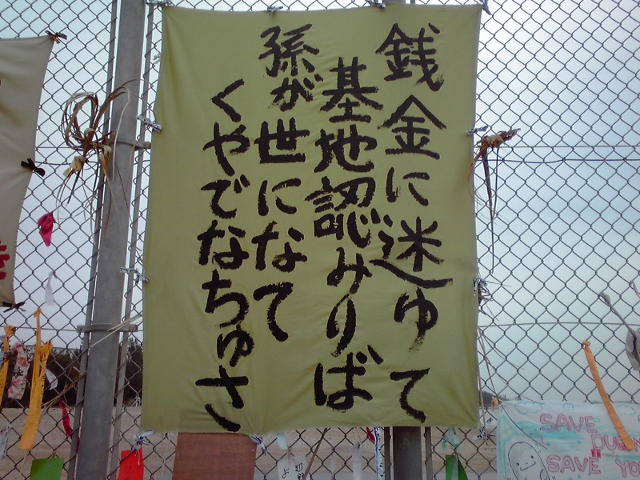 銭金に迷ゆて
基地認みりば
孫が世になて
くやでなちゅさ
SAVE
SAVE YO